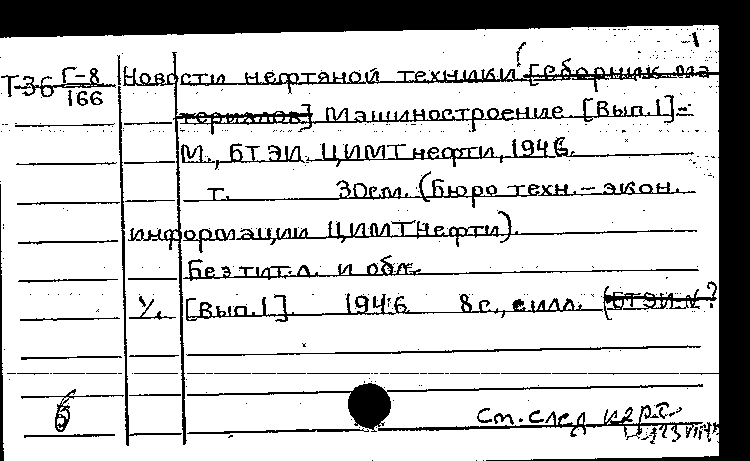 Т-36 Г-8/166 Новости нефтяной техники [Сборник ма
териалов] Машиностроение. [Вып.1]-
М., БТЭИ ЦИМТнефти, 1946.
т. 30см. (Бюро техн.-экон.
информации ЦИМТнефти).
Без тит.л. и обл.
У. [Вып.1]. 1946 8с., с илл. (БТЭИ.№?
б см.след карт.